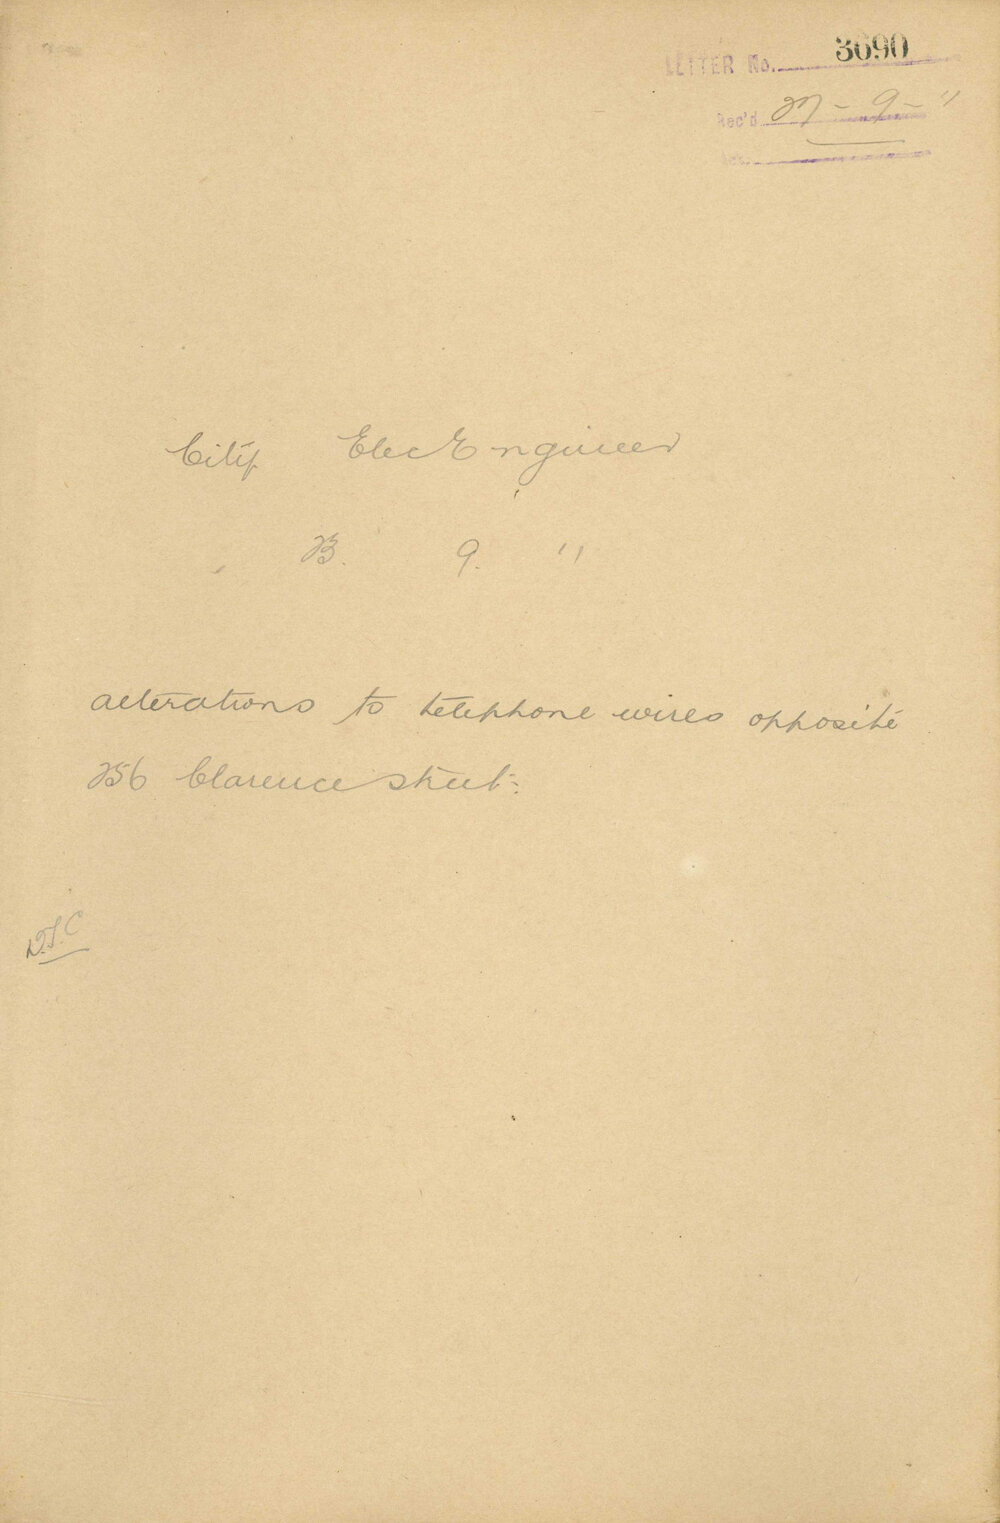 LETTER No. 3690
Rec'd 27-9-11
City Elec Engineer
23. 9. 11
alterations to telephone wires opposite
256 Clarence street.